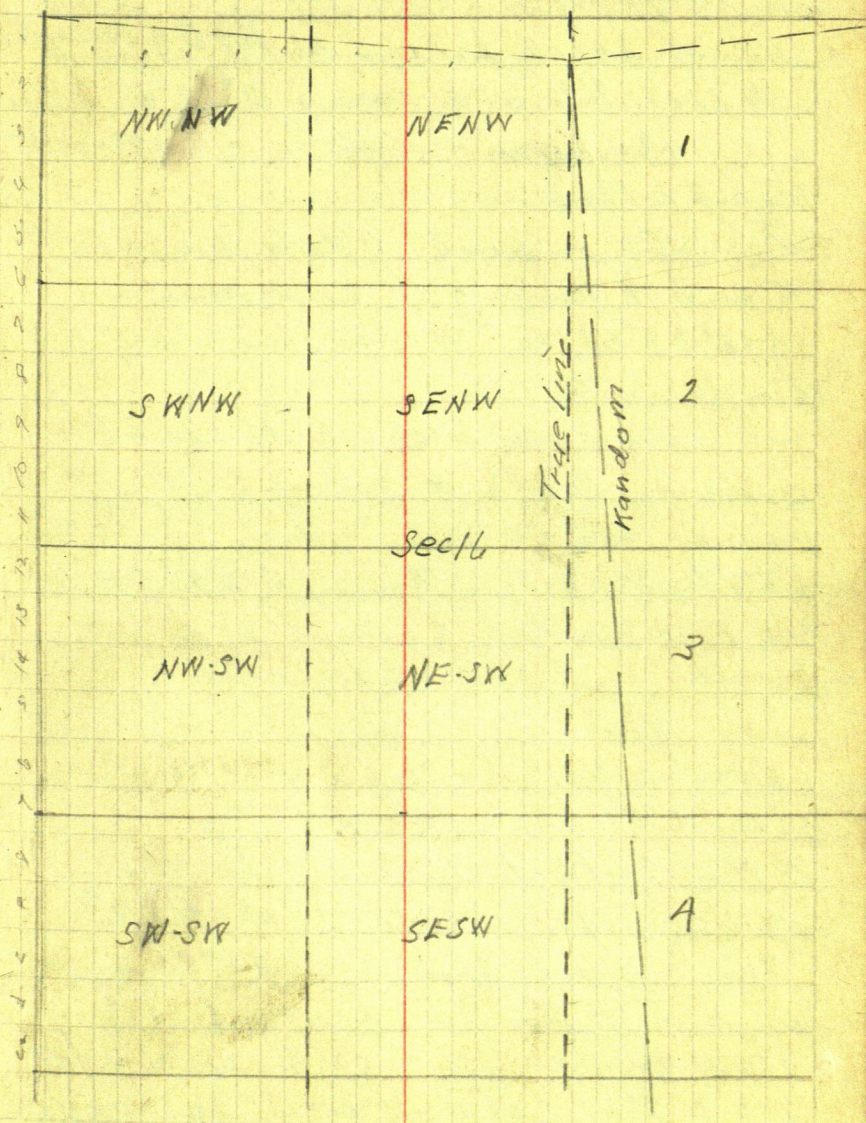 NW.NW
NENW
1
SWNW
SENW
True Line
Random
2
Sec 16
NW-SW
NE-SW
3
SW-SW
SESW
4